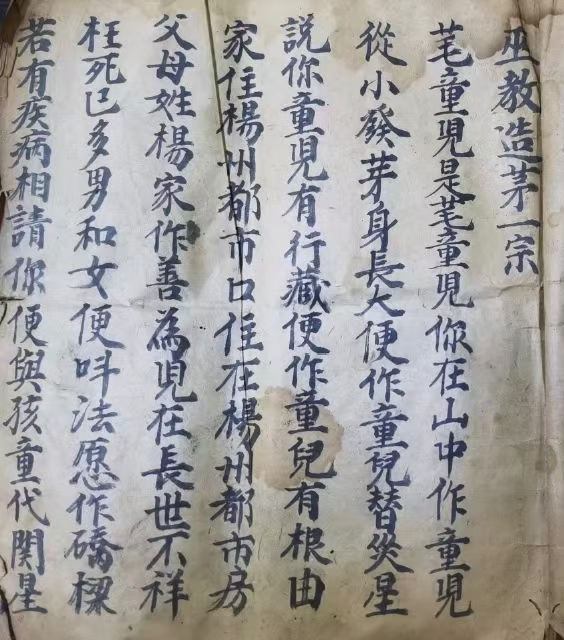 巫教造茅一宗
茅童児是茅童児你在山中作童児
從小發芽身長大便作童兒替災星
説你童児有行藏便作童兒有根由
家住楊州都市口住在楊州都市房
父母姓楊家作善為児在長世不祥
枉死已多男和女便呌法愿作磱樑
若有疾病相請你便與孩童代関星